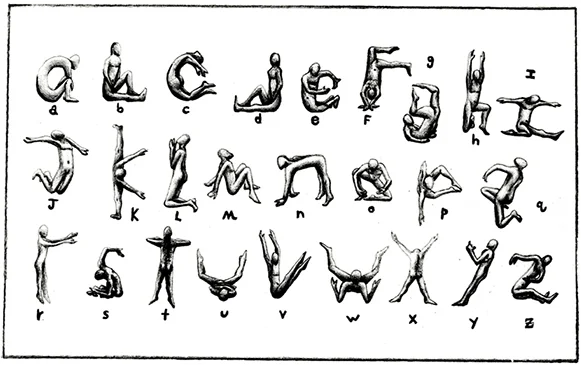 a b c d e F g h I
J K L M n o p q
r s t u v w x y z